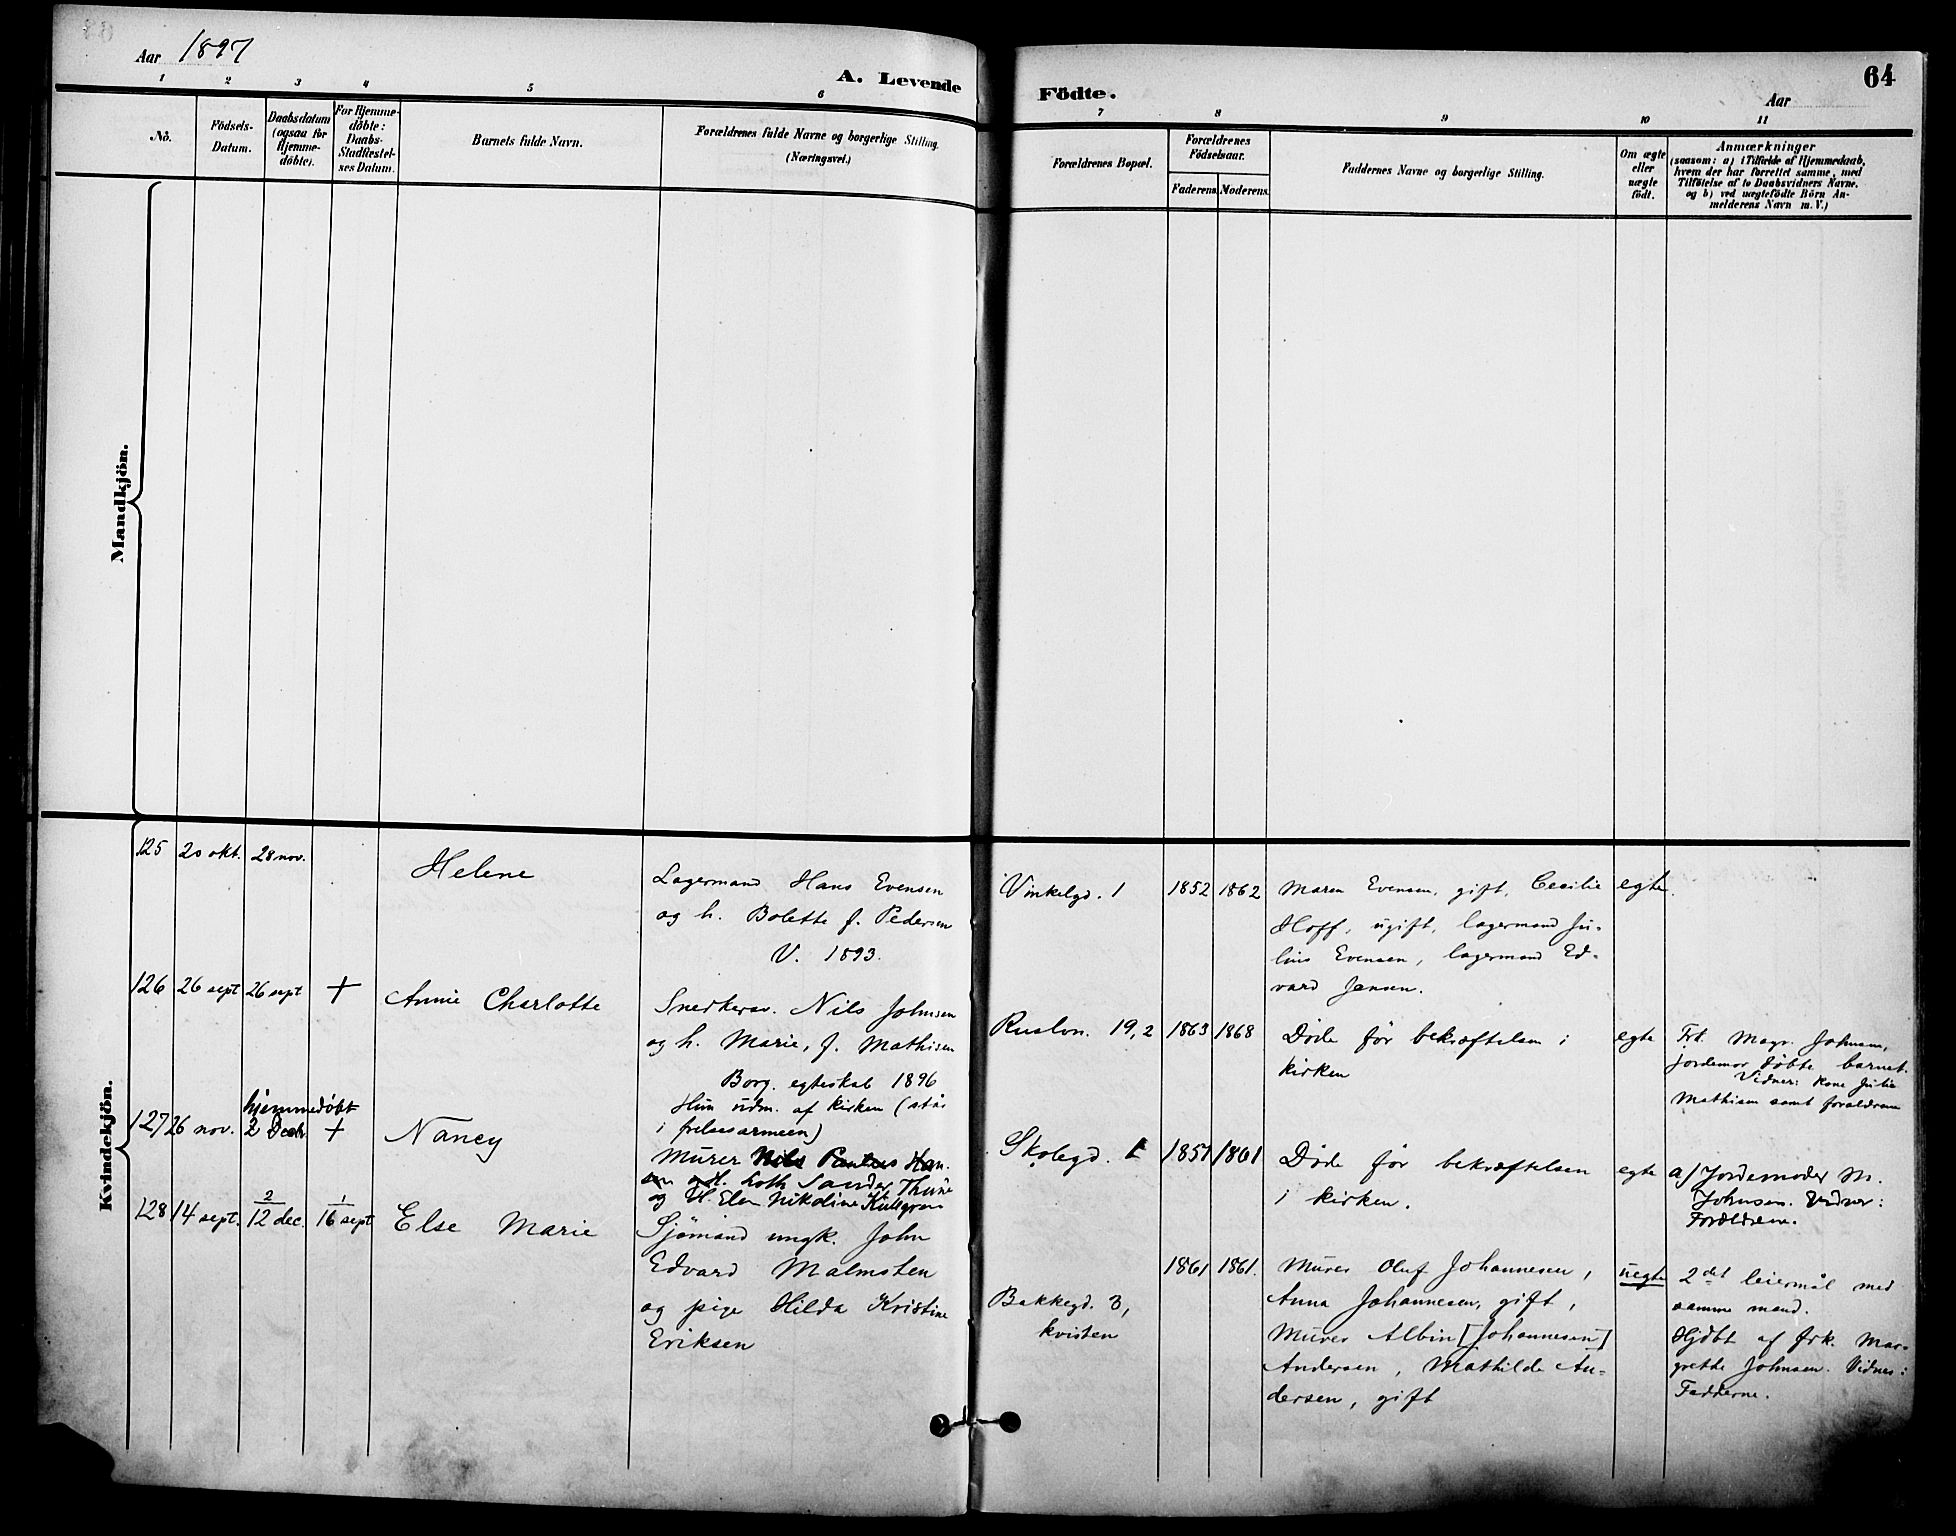 Aar 1897
A. Levende
1 2 3 4 5 6
Nô.
Födsels-
Datum.
Daabsdatum
(ogsaa for
Hjemme-
döbte).
For Hjemme-
döbte:
Daabs-
Stadfæstel-
ses Datum.
Barnets fulde Navn.
Forældrenes fulde Navne og borgerlige Stilling.
(Næringsvei.)
Mandkjön.
Kvindekjön.
125 20 okt. 28 nov.
Helene
Lagermand Hans Evensen
og h. Bolette f. Pedersen
V. 1893.
126 26 sept 26 sept +
Annie Charlotte
Snedkersv. Nils Johnsen
og h. Marie, f. Mathisen
Borg. egteskab 1896
Hun udm. af kirken (står
i frelsesarmeen)
hjemmedøbt
127 26 nov. 2 Decbr +
Nancy
Murer Nils Paulus Han-
sen og H. Loth Sander Thune
og H. Elen Nikoline Kullgren
128 14 sept. 2/12 dec. 1/16 sept
Else Marie
Sjømand ungk. John
Edvard Malmsten
og pige Hilda Kristine
Eriksen
Födte.
Aar
64
7 8 9 10 11
Forældrenes Bopæl.
Forældrenes
Födselsaar.
Faderens. Moderens.
Faddernes Navne og borgerlige Stilling.
Om ægte
eller
uægte
födt.
Anmærkninger
(saasom: a) i Tilfælde af Hjemmedaab,
hvem der har forrettet samme, med
Tilföielse af to Daabsvidners Navne.
og b) ved uægtefödte Börn An-
melderens Navn m. V.)
Vinkelgd. 1 1852 1862
Maren Evensen, gift, Cecilie
Hoff, ugift, lagermand Ju-
lius Evensen, lagermand Ed-
vard Jensen.
egte.
Ruslvn. 19,2 1863 1868
Døde før bekræftelsen i
kirken
egte
Frk. Magr. Johnsen,
jordemor døbte barnet.
Vidner: Kone Julie
Mathisen samt forældrene
Skolegd. 1857 1861
Døde før bekræftelsen
i kirken.
egte
a) Jordemoder M.
Johnsen. Vidner:
Forældrene.
Bakkegd. 3,
kvisten
1861 1861.
Murer Oluf Johannesen,
Anna Johannesen, gift,
Murer Albin [Johannesen]
Andersen, Mathilde An-
dersen, gift
uegte
2det leiermål med
samme mand.
Hjdbt af frk. Mar-
grethe Johnsen. Vidner:
Fadderne.